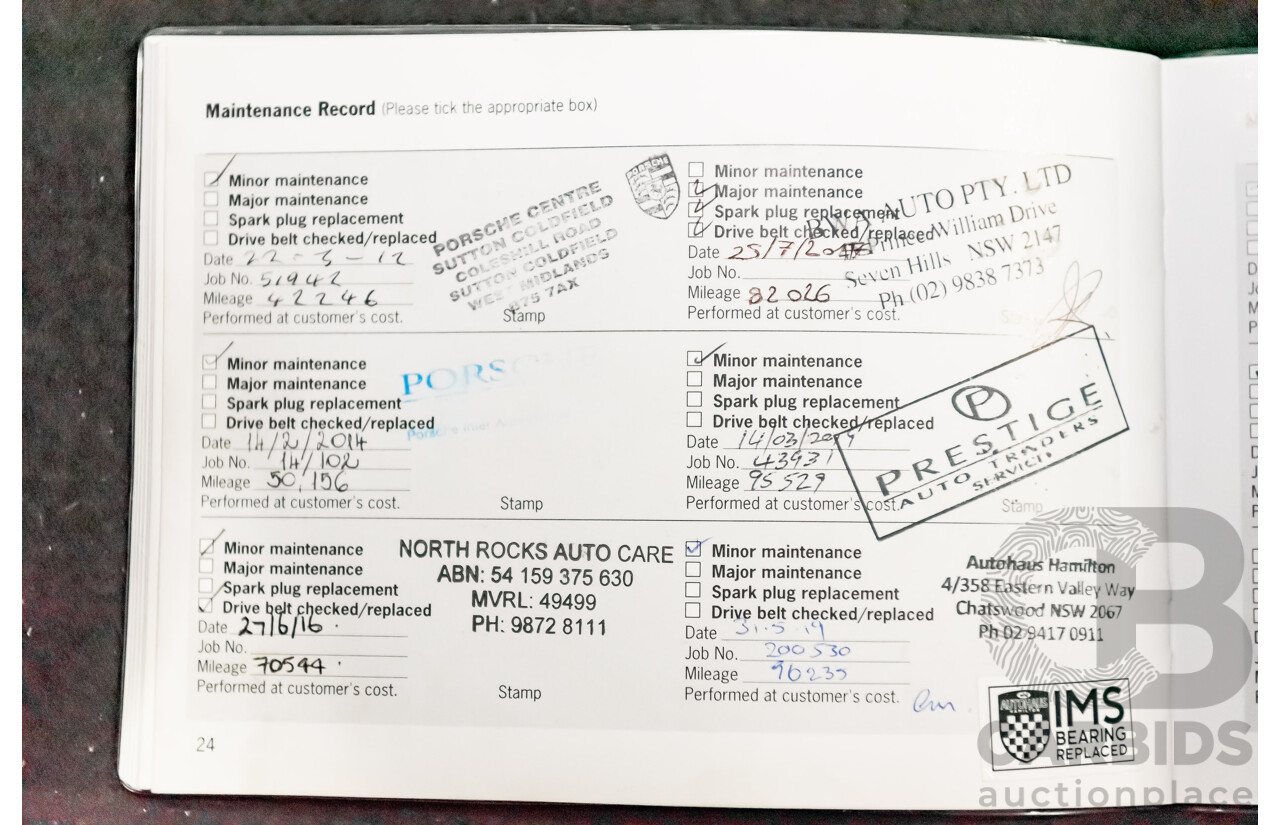 Maintenance Record (Please tick the appropriate box)
Minor maintenance
Major maintenance
Spark plug replacement
Drive belt checked/replaced
Date 22-3-12
Job No. 51942
Mileage 42246
Performed at customer's cost.
Stamp
PORSCHE CENTRE
SUTTON COLDFIELD
COLESHILL ROAD
SUTTON COLDFIELD
WEST MIDLANDS
B75 7AX
PORSCHE
Minor maintenance
Major maintenance
Spark plug replacement
Drive belt checked/replaced
Date 14/2/2014
Job No. 14/102
Mileage 50,156
Performed at customer's cost.
Stamp
PORSC
Minor maintenance
Major maintenance
Spark plug replacement
Drive belt checked/replaced
Date 27/6/16
Job No.
Mileage 70544
Performed at customer's cost.
Stamp
NORTH ROCKS AUTO CARE
ABN: 54 159 375 630
MVRL: 49499
PH: 9872 8111
24
Minor maintenance
Major maintenance
Spark plug replacement
Drive belt checked/replaced
Date 25/7/
Job No.
Mileage 82026
Performed at customer's cost.
AUTO PTY. LTD
Prince William Drive
Seven Hills NSW 2147
Ph (02) 9838 7373
Minor maintenance
Major maintenance
Spark plug replacement
Drive belt checked/replaced
Date 14/03/2019
Job No. 43931
Mileage 95529
Performed at customer's cost.
Stamp
P
PRESTIGE
AUTO TRADERS
Minor maintenance
Major maintenance
Spark plug replacement
Drive belt checked/replaced
Date 31.5.19
Job No. 200530
Mileage 96235
Performed at customer's cost.
Autohaus Hamilton
4/358 Eastern Valley Way
Chatswood NSW 2067
Ph 02 9417 0911
AUTOHAUS
IMS
BEARING
REPLACED
CARBIDS
auctionplace